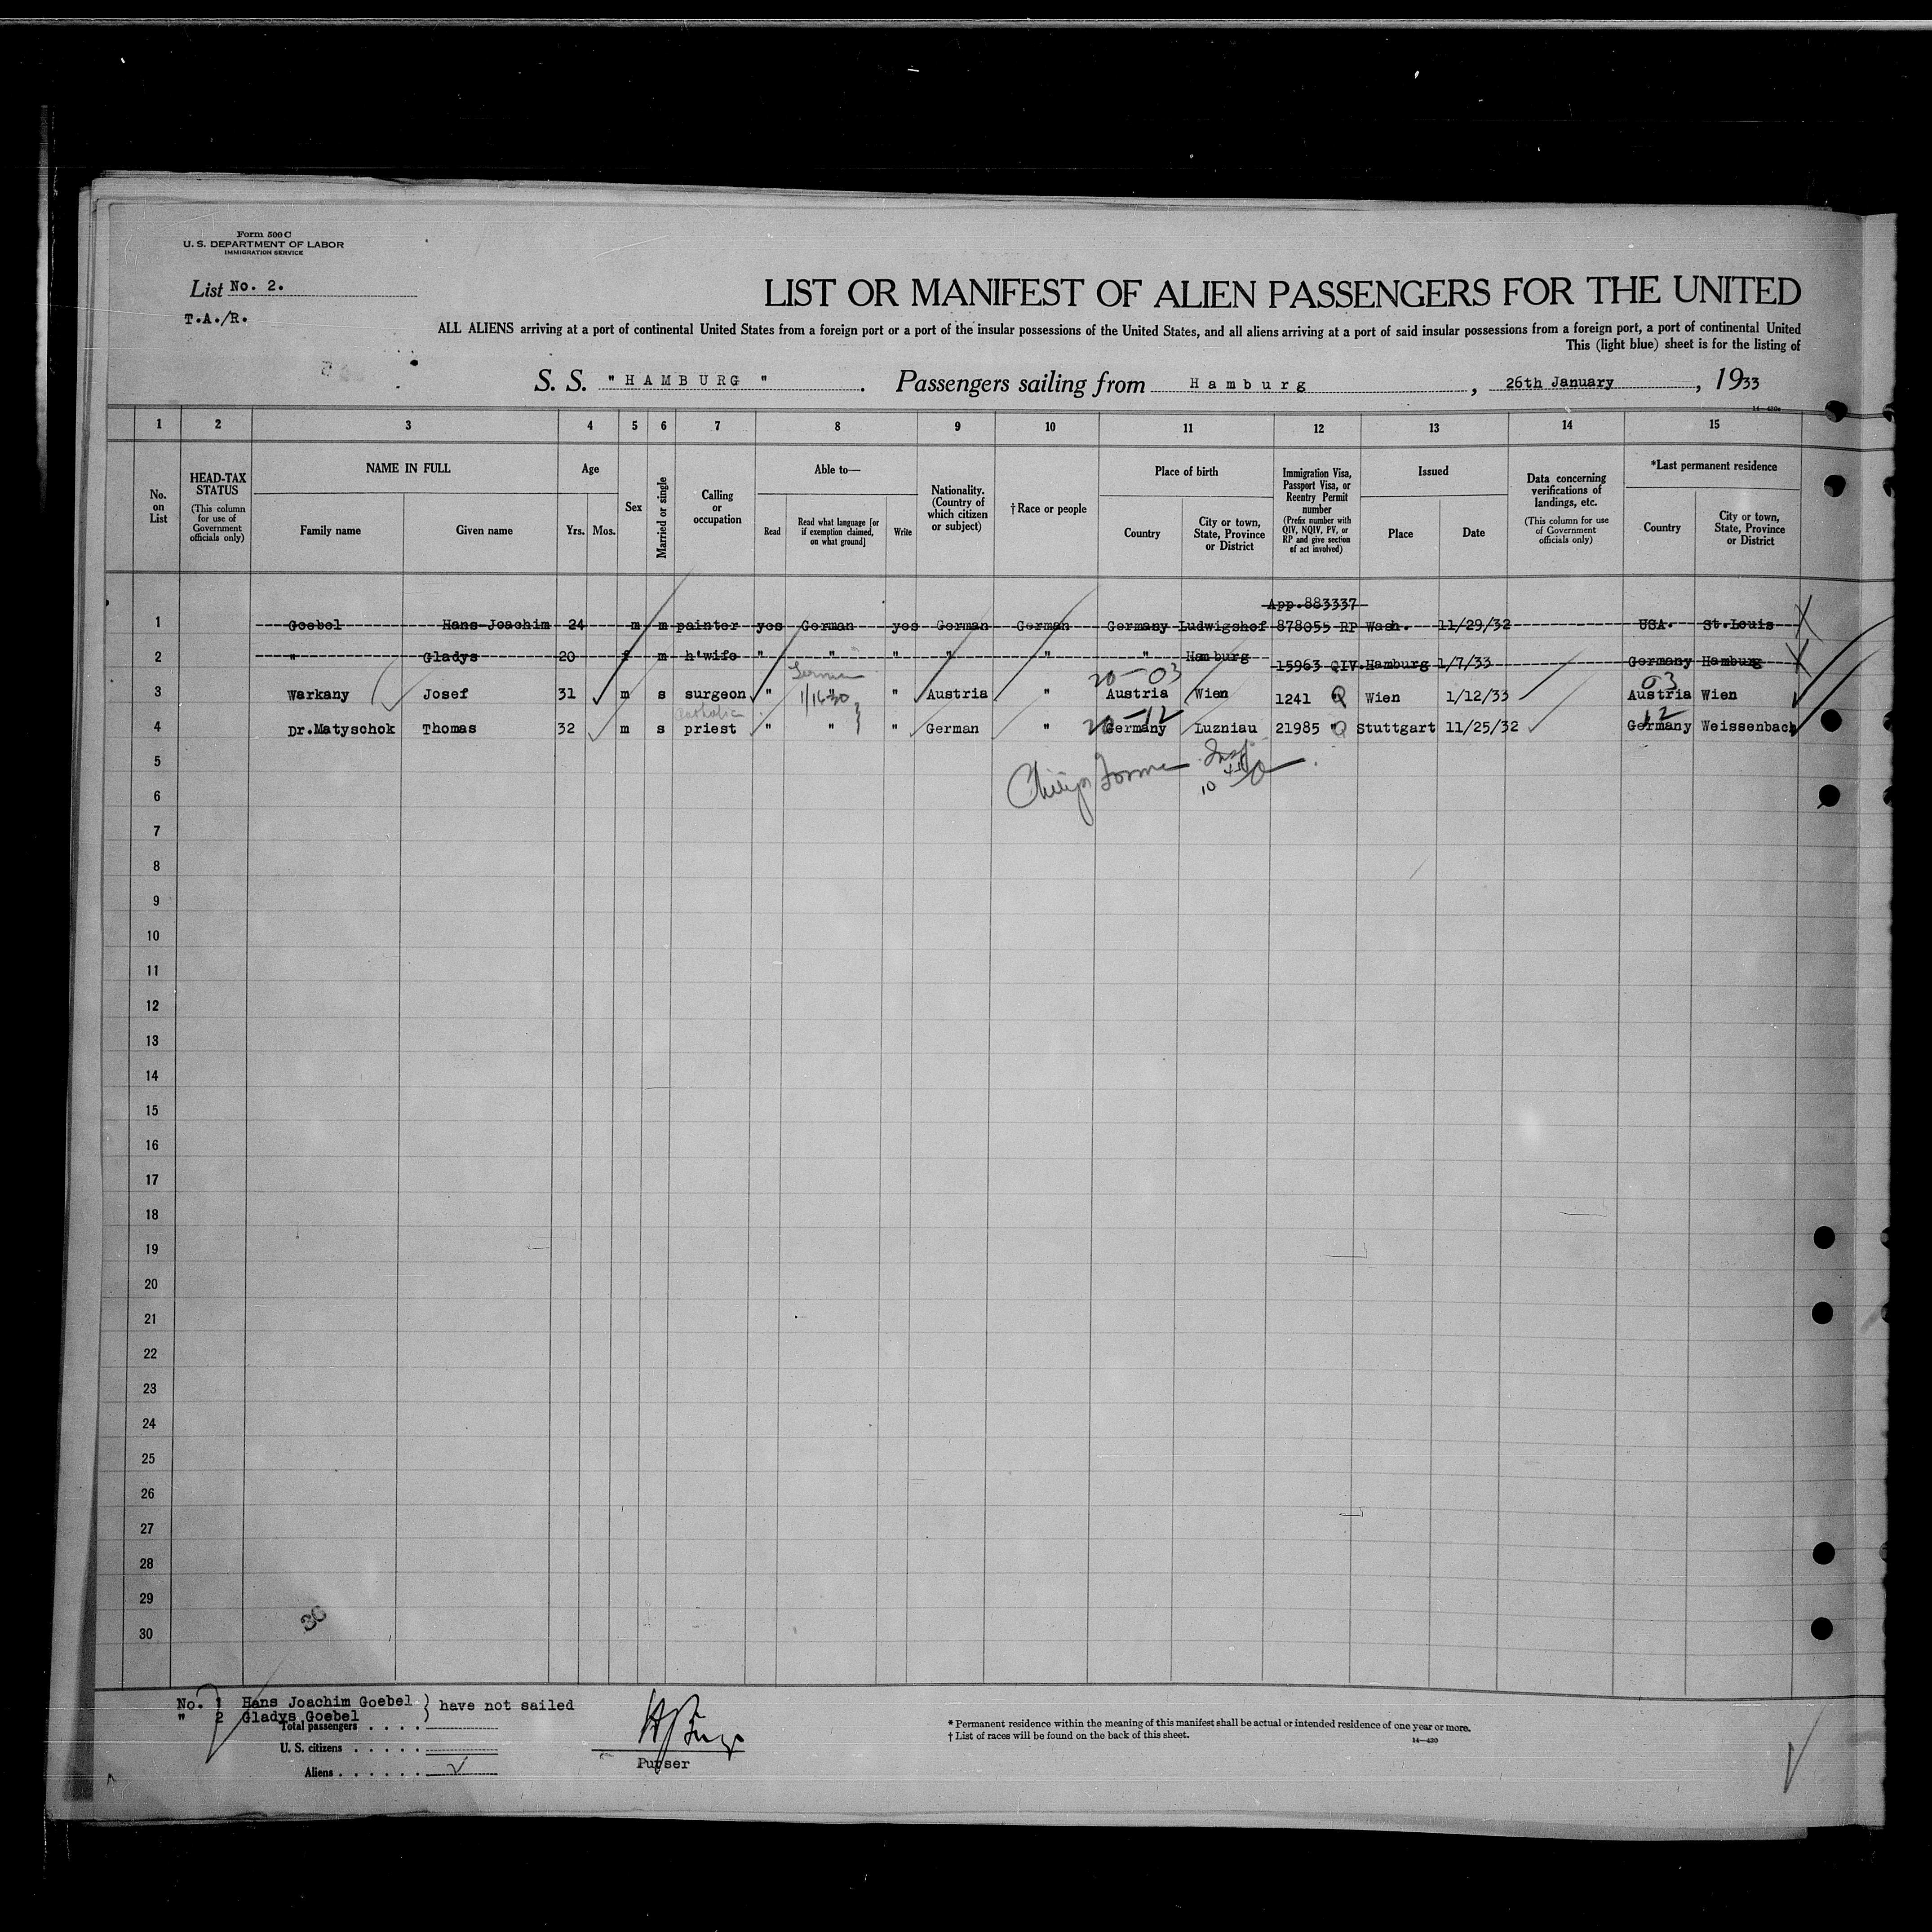 Form 500 C
U. S. DEPARTMENT OF LABOR
IMMIGRATION SERVICE
List No. 2.
T.A./R.
LIST OR MANIFEST OF ALIEN PASSENGERS FOR THE UNITED
ALL ALIENS arriving at a port of continental United States from a foreign port or a port of the insular possessions of the United States, and all aliens arriving at a port of said insular possessions from a foreign port, a port of continental United
This (light blue) sheet is for the listing of
S. S. "HAMBURG". Passengers sailing from Hamburg, 26th January, 1933
14—430a
1 2 3 4 5 6 7 8 9 10 11 12 13 14 15
No. on List
HEAD-TAX STATUS (This column for use of Government officials only)
NAME IN FULL
Family name Given name
Age
Yrs. Mos.
Sex
Married or single
Calling or occupation
Able to—
Read Read what language [or if exemption claimed, on what ground] Write
Nationality. (Country of which citizen or subject)
†Race or people
Place of birth
Country City or town, State, Province or District
Immigration Visa, Passport Visa, or Reentry Permit number (Prefix number with QIV, NQIV, PV, or RP and give section of act involved)
Issued
Place Date
Data concerning verifications of landings, etc. (This column for use of Government officials only)
*Last permanent residence
Country City or town, State, Province or District
App.883337
1 Goebel Hans-Joachim 24 m m painter yes German yes German German Germany Ludwigshof 878055 RP Wash. 11/29/32 USA. St.Louis
2 " Gladys 20 f m h'wife " " " " " " Hamburg 15963 QIV.Hamburg 1/7/33 Germany Hamburg
German 20-03 03
3 Warkany Josef 31 m s surgeon " " " Austria " Austria Wien 1241 Q Wien 1/12/33 Austria Wien
Catholic 20-12 12
4 Dr.Matyschok Thomas 32 m s priest " " " German " Germany Luzniau 21985 " Q Stuttgart 11/25/32 Germany Weissenbach
5
6
7
8
9
10
11
12
13
14
15
16
17
18
19
20
21
22
23
24
25
26
27
28
29
30
30
No. 1 Hans Joachim Goebel } have not sailed
" 2 Gladys Goebel
Total passengers . . . .
U. S. citizens . . . . .
Aliens . . . . . .
Purser
* Permanent residence within the meaning of this manifest shall be actual or intended residence of one year or more.
† List of races will be found on the back of this sheet.
14—430